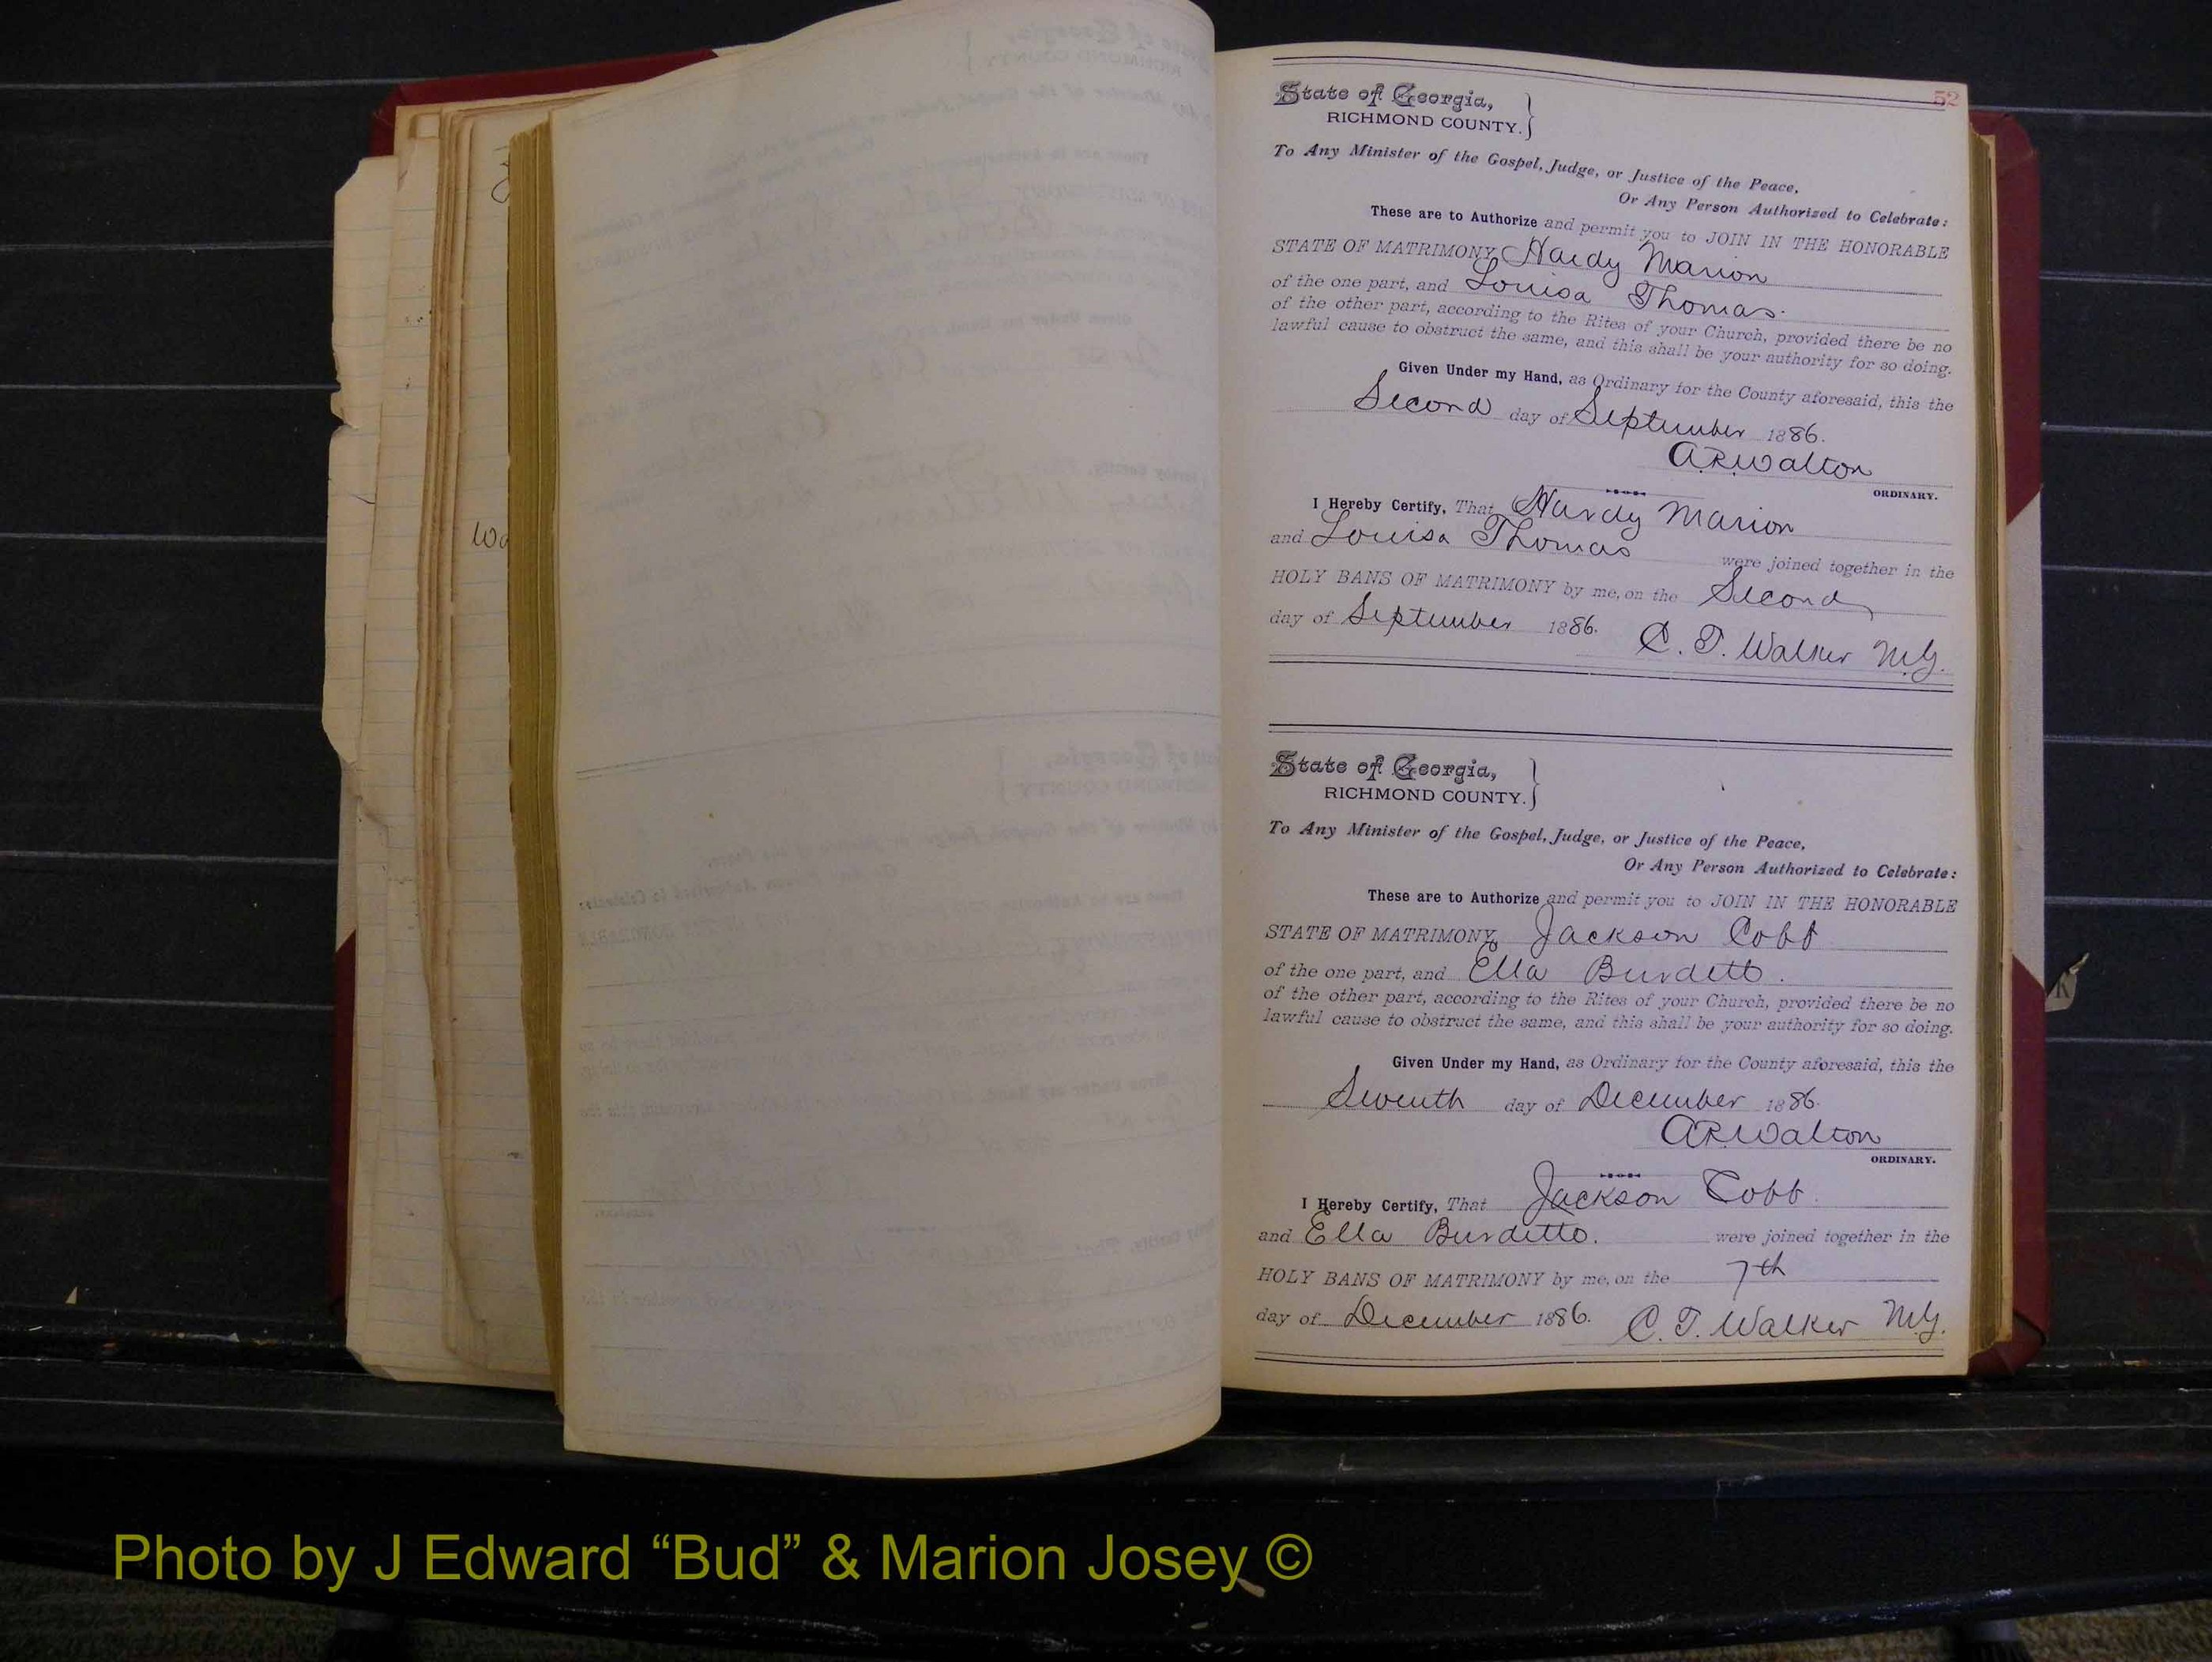 52
State of Georgia,
RICHMOND COUNTY.
To Any Minister of the Gospel, Judge, or Justice of the Peace,
Or Any Person Authorized to Celebrate:
These are to Authorize and permit you to JOIN IN THE HONORABLE
STATE OF MATRIMONY, Hardy Marion
of the one part, and Louisa Thomas.
of the other part, according to the Rites of your Church, provided there be no
lawful cause to obstruct the same, and this shall be your authority for so doing.
Given Under my Hand, as Ordinary for the County aforesaid, this the
Second day of September 1886.
A.R. Walton
ORDINARY.
I Hereby Certify, That Hardy Marion
and Louisa Thomas were joined together in the
HOLY BANS OF MATRIMONY by me, on the Second
day of September 1886. C. T. Walker M.G.
State of Georgia,
RICHMOND COUNTY.
To Any Minister of the Gospel, Judge, or Justice of the Peace,
Or Any Person Authorized to Celebrate:
These are to Authorize and permit you to JOIN IN THE HONORABLE
STATE OF MATRIMONY, Jackson Cobb
of the one part, and Ella Burdett.
of the other part, according to the Rites of your Church, provided there be no
lawful cause to obstruct the same, and this shall be your authority for so doing.
Given Under my Hand, as Ordinary for the County aforesaid, this the
Seventh day of December 1886.
A.R. Walton
ORDINARY.
I Hereby Certify, That Jackson Cobb.
and Ella Burditto. were joined together in the
HOLY BANS OF MATRIMONY by me, on the 7th
day of December 1886. C. T. Walker M.G.
Photo by J Edward “Bud” & Marion Josey ©